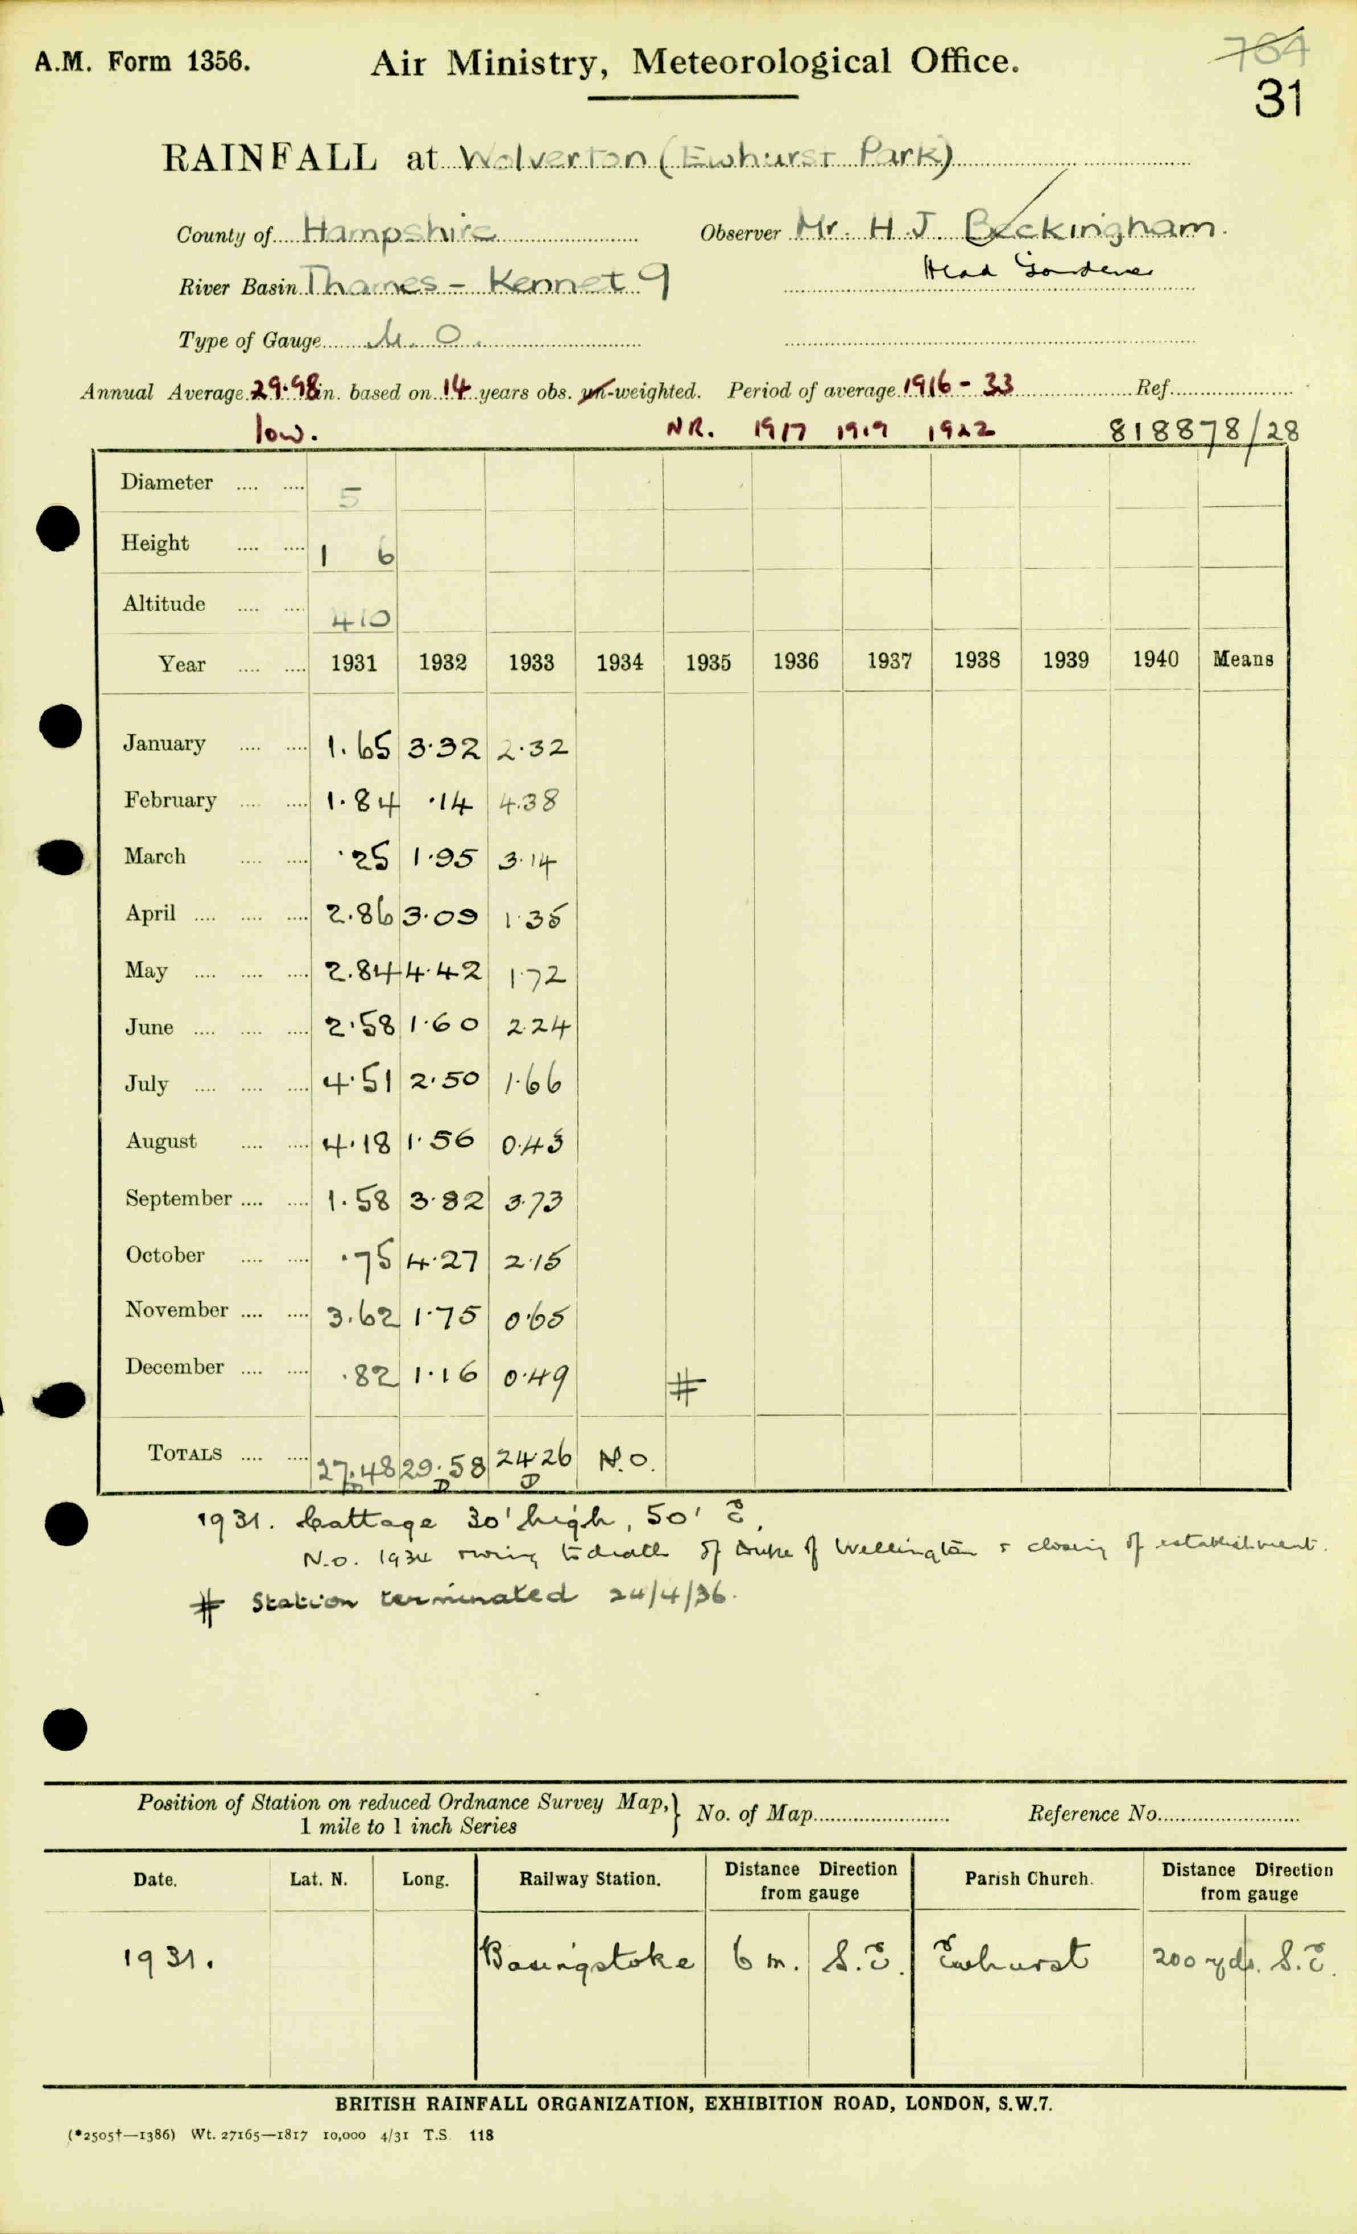 A.M. Form 1356. Air Ministry, Meteorological Office. 764
31
RAINFALL at Wolverton (Ewhurst Park)
County of Hampshire Observer Mr. H. J. Beckingham.
River Basin Thames - Kennet 9 Head Gardener
Type of Gauge M. O.
Annual Average 29.98 in. based on 14 years obs. un-weighted. Period of average 1916 - 33 Ref.
low. NR. 1917 1919 1922 818878/28
Diameter 5
Height 1 6
Altitude 410
Year 1931 1932 1933 1934 1935 1936 1937 1938 1939 1940 Means
January 1.65 3.32 2.32
February 1.84 .14 4.38
March .25 1.95 3.14
April 2.86 3.09 1.35
May 2.84 4.42 1.72
June 2.58 1.60 2.24
July 4.51 2.50 1.66
August 4.18 1.56 0.43
September 1.58 3.82 3.73
October .75 4.27 2.15
November 3.62 1.75 0.65
December .82 1.16 0.49 #
TOTALS 27.48 29.58 24.26 N.O.
D D
1931. Cottage 30' high, 50' E.
N.O. 1934 owing to death of Duke of Wellington & closing of establishment.
# Station terminated 24/4/36.
Position of Station on reduced Ordnance Survey Map,} No. of Map Reference No.
1 mile to 1 inch Series
Date. Lat. N. Long. Railway Station. Distance Direction from gauge Parish Church. Distance Direction from gauge
1931. Basingstoke 6 m. S.E. Ewhurst 200 yds. S.E.
BRITISH RAINFALL ORGANIZATION, EXHIBITION ROAD, LONDON, S.W.7.
(*2505†—1386) Wt. 27165—1817 10,000 4/31 T.S. 118